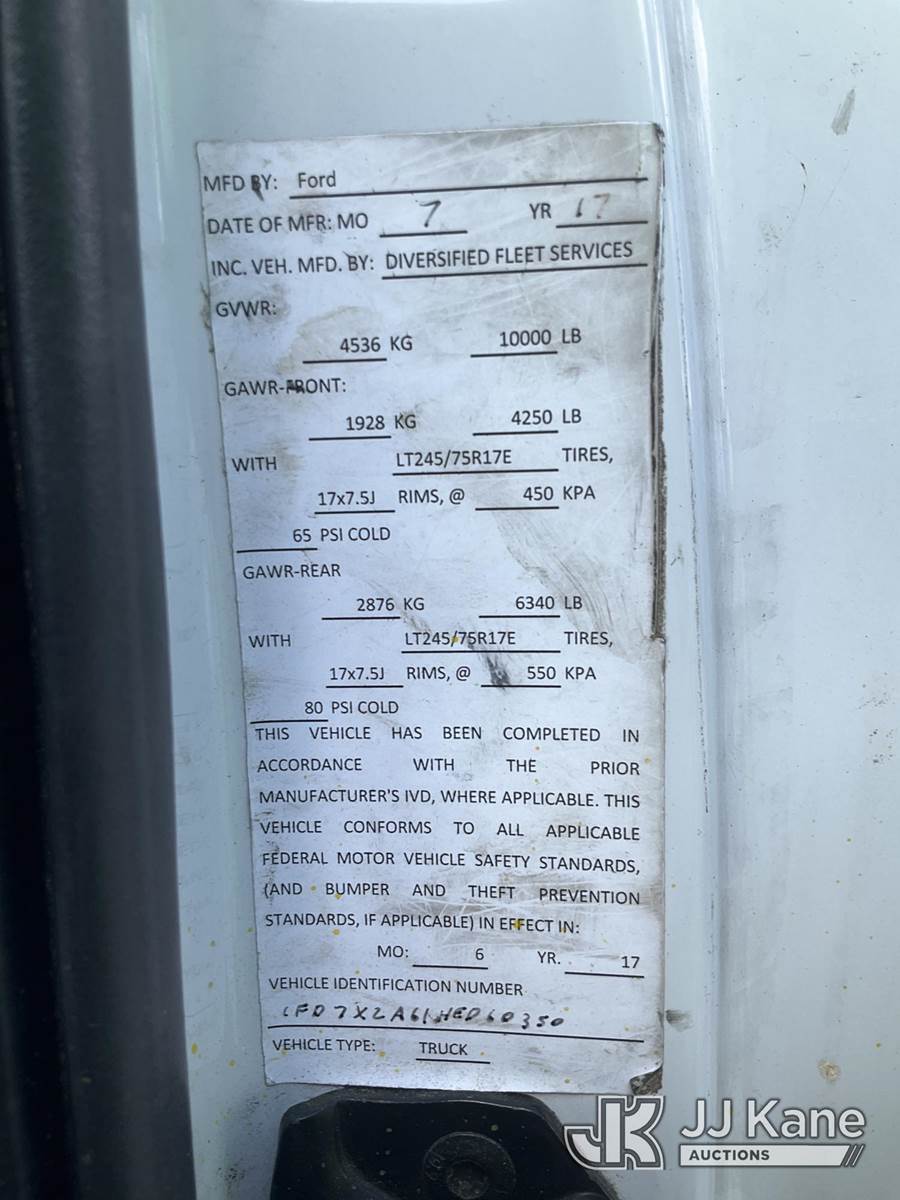 MFD BY: Ford
DATE OF MFR: MO 7 YR 17
INC. VEH. MFD. BY: DIVERSIFIED FLEET SERVICES
GVWR:
4536 KG 10000 LB
GAWR-FRONT:
1928 KG 4250 LB
WITH LT245/75R17E TIRES,
17x7.5J RIMS, @ 450 KPA
65 PSI COLD
GAWR-REAR
2876 KG 6340 LB
WITH LT245/75R17E TIRES,
17x7.5J RIMS, @ 550 KPA
80 PSI COLD
THIS VEHICLE HAS BEEN COMPLETED IN
ACCORDANCE WITH THE PRIOR
MANUFACTURER'S IVD, WHERE APPLICABLE. THIS
VEHICLE CONFORMS TO ALL APPLICABLE
FEDERAL MOTOR VEHICLE SAFETY STANDARDS,
(AND BUMPER AND THEFT PREVENTION
STANDARDS, IF APPLICABLE) IN EFFECT IN:
MO: 6 YR. 17
VEHICLE IDENTIFICATION NUMBER
1FD7X2A61HED60350
VEHICLE TYPE: TRUCK
JK JJ Kane
AUCTIONS